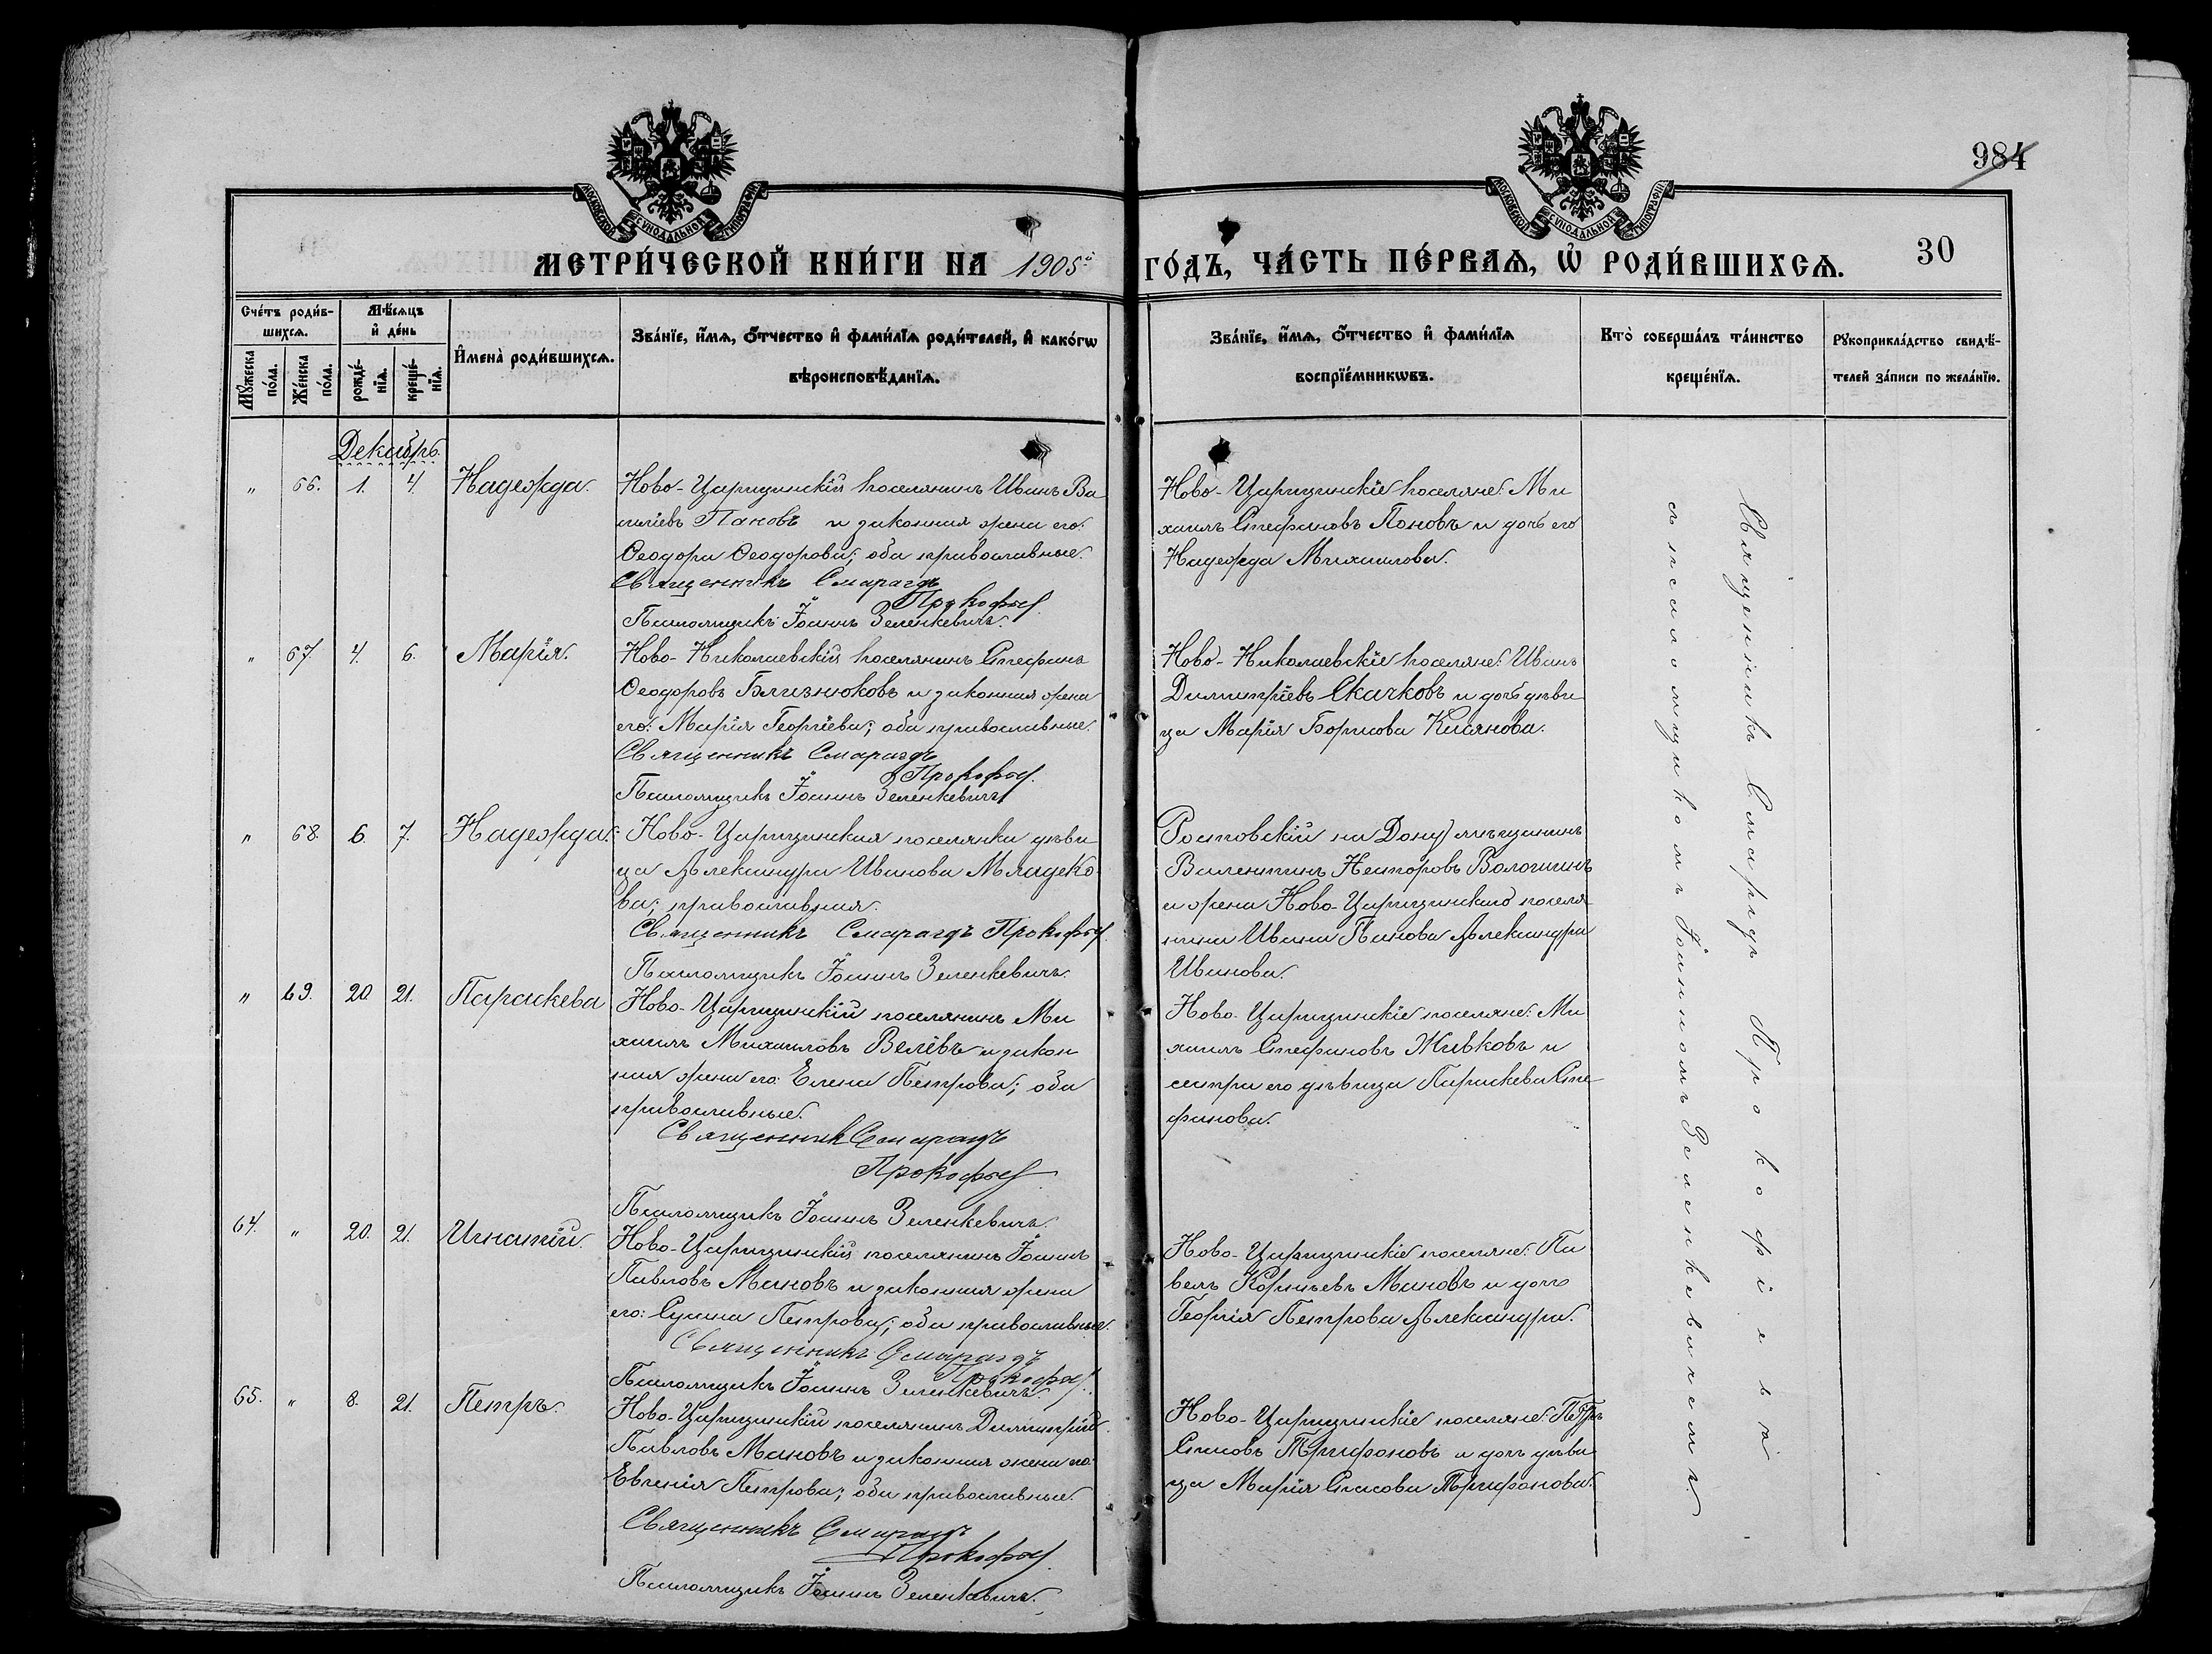 984
МОСКОВСКОЙ СѴНОДАЛЬНОЙ ТИПОГРАФІИ
МОСКОВСКОЙ СѴНОДАЛЬНОЙ ТИПОГРАФІИ
МЕТРИ́ЧЕСКОЙ КНИ́ГИ НА 1905й ГО́ДЪ, ЧА́СТЬ ПЕ́РВАѦ, Ѡ҆ РОДИ́ВШИХСѦ. 30
Сче́тъ роди́в-
шихсѧ.
Мѣ́сѧцъ
и҆ де́нь
Мꙋ́жеска по́ла.
Же́нска по́ла.
рожде́-нїѧ.
креще́-нїѧ.
И҆мена̀ роди́вшихсѧ.
Зва́нїе, и҆́мѧ, ѻ҆́тчество и҆ фами́лїѧ роди́телей, и҆ како́гѡ
вѣроисповѣ́данїѧ.
Зва́нїе, и҆́мѧ, ѻ҆́тчество и҆ фами́лїѧ
воспрїе́мникѡвъ.
Кто̀ соверша́лъ та́инство
креще́нїѧ.
Рꙋкоприкла́дство свидѣ́-
телей за́писи по жела́нїю.
Декабрь.
" 66. 1. 4. Надежда. Ново-Царицинскій поселянинъ Иванъ Ва
силіевъ Пановъ и законная жена его:
Ѳеодора Ѳеодорова; оба православные.
Священникъ Смарагдъ
Прокофьев
Псаломщикъ Іоаннъ Зеленкевичъ.
Ново-Царицинскіе поселяне: Ми
хаилъ Стефановъ Пановъ и дочь его
Надежда Михаилова.
" 67. 4. 6. Марія. Ново-Николаевскій поселянинъ Стефанъ
Ѳеодоровъ Близнюковъ и законная жена
его: Марія Георгіева; оба православные.
Священникъ Смарагдъ
Прокофьев
Псаломщикъ Іоаннъ Зеленкевичъ
Ново-Николаевскіе поселяне: Иванъ
Димитріевъ Скачковъ и дочь дѣви
ца Марія Борисова Касянова.
" 68. 6. 7. Надежда. Ново-Царицинская поселянка дѣви
ца Александра Иванова Младеко
ва; православная.
Священникъ Смарагдъ Прокофьев
Псаломщикъ Іоаннъ Зеленкевичъ.
Ростовскій на Дону мѣщанинъ
Валентинъ Несторовъ Вологинъ
и жена Ново-Царицинскаго поселя
нина Ивана Панова Александра
Иванова.
" 69. 20 21. Параскева Ново-Царицинскій поселянинъ Ми
хаилъ Михаиловъ Велевъ и закон
ная жена его: Елена Петрова; оба
православные.
Священник Смарагдъ
Прокофьев
Псаломщикъ Іоаннъ Зеленкевичъ.
Ново-Царицинскіе поселяне: Ми
хаилъ Стефановъ Живковъ и
сестра его дѣвица Параскева Сте
фанова.
64. " 20. 21. Игнатій. Ново-Царицинскій поселянинъ Іоаннъ
Павловъ Мановъ и законная жена
его: Сусана Петрова; оба православные.
Священникъ Смарагдъ
Прокофьев
Псаломщикъ Іоаннъ Зеленкевичъ.
Ново-Царицинскіе поселяне: Па
велъ Мановъ и дочь
Георгія Петрова Александра.
65. " 8. 21. Петръ. Ново-Царицинскій поселянинъ Димитрій
Павловъ Мановъ и законная жена его:
Евгенія Петрова; оба православные.
Священникъ Смарагдъ
Прокофьев
Псаломщикъ Іоаннъ Зеленкевичъ.
Ново-Царицинскіе поселяне: Петръ
Спасовъ Трифоновъ и дочь дѣви
ца Марія Спасова Трифонова.
Священникъ Смарагдъ Прокофіевъ
съ псаломщикомъ Іоанномъ Зеленкевичемъ.